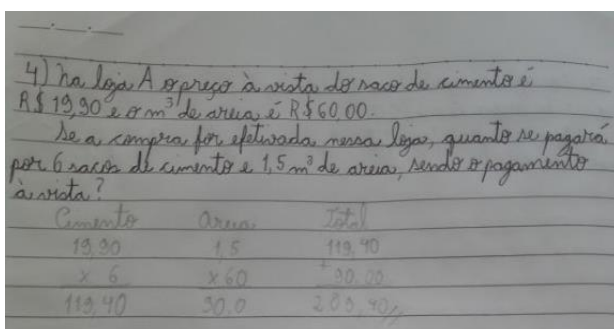 4) Na loja A o preço à vista do saco de cimento é
R$ 19,90 e o m³ de areia é R$ 60,00.
Se a compra for efetivada nessa loja, quanto se pagará
por 6 sacos de cimento e 1,5 m³ de areia, sendo o pagamento
à vista?
Cimento Areia Total
19,90 1,5 119,40
x 6 x 60 + 90,00
119,40 90,0 209,40//